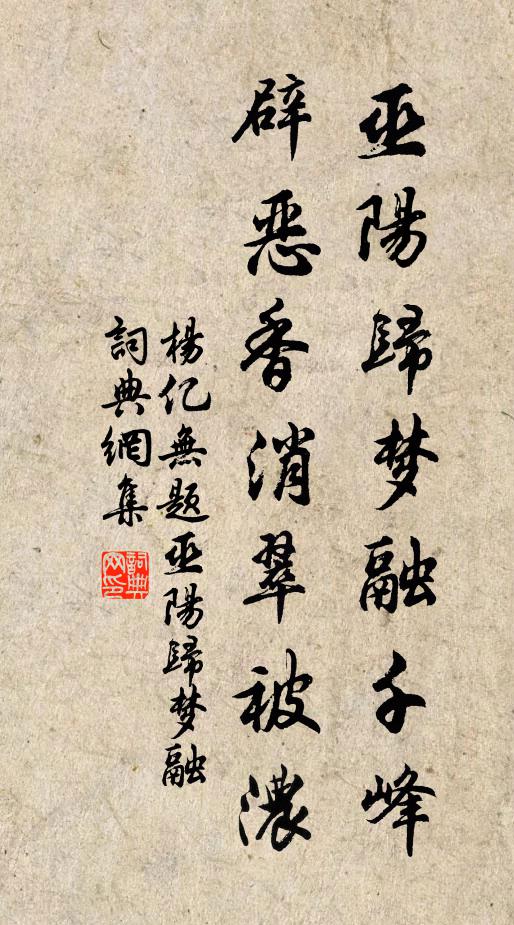 巫陽歸梦融千峰
辟恶香消翠被濃
楊亿無题巫陽歸梦融
詞典網集
詞典网印